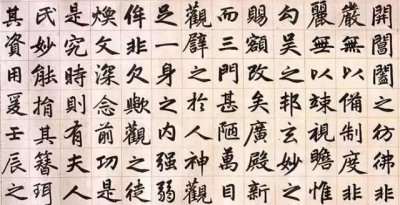 開閶闔之彷彿非
嚴無以備制度非
麗無以竦視瞻惟
勾吳之邦玄妙之
賜額改矣廣殿新
而三門甚陋萬目
觀譬之於人神觀
足一身之內强弱
侔非欠歟觀之徒
煥文深念前功是
是究時則有夫人
氏妙能捐其簪珥
其資用爰壬辰之